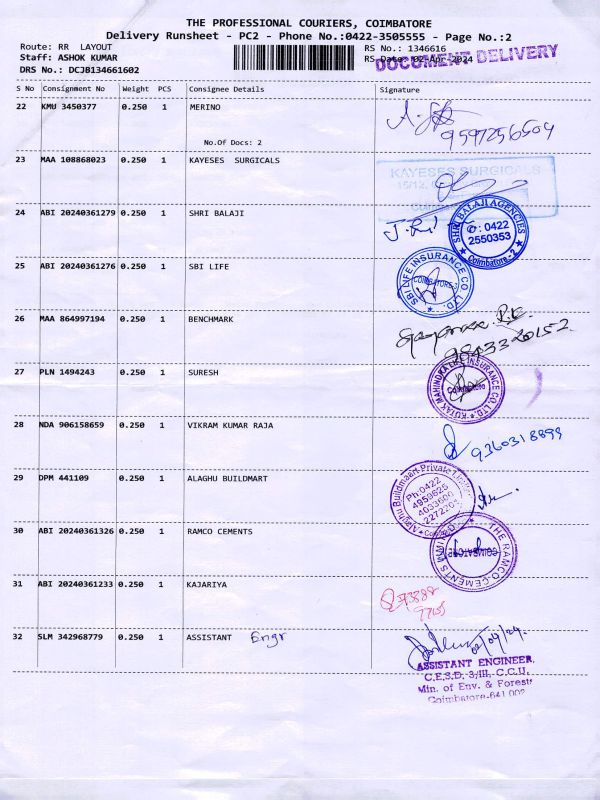 THE PROFESSIONAL COURIERS, COIMBATORE
Delivery Runsheet - PC2 - Phone No.:0422-3505555 - Page No.:2
Route: RR LAYOUT
RS No.: 1346616
Staff: ASHOK KUMAR
RS Date: 02-Apr-2024
DOCUMENT DELIVERY
DRS No.: DCJB134661602
S No Consignment No Weight PCS Consignee Details Signature
22 KMU 3450377 0.250 1 MERINO
9597256504
No.Of Docs: 2
23 MAA 108868023 0.250 1 KAYESES SURGICALS
KAYESES SURGICALS
24 ABI 20240361279 0.250 1 SHRI BALAJI
SHRI BALAJI AGENCIES
✆: 0422
2550353
Coimbatore-2
25 ABI 20240361276 0.250 1 SBI LIFE
SBI LIFE INSURANCE CO. LTD.
26 MAA 864997194 0.250 1 BENCHMARK
27 PLN 1494243 0.250 1 SURESH
KOTAK MAHINDRA LIFE INSURANCE CO. LTD.
28 NDA 906158659 0.250 1 VIKRAM KUMAR RAJA
9360318899
29 DPM 441109 0.250 1 ALAGHU BUILDMART
Alaghu Buildmaart Private
Ph:0422
4959625
4033600
30 ABI 20240361326 0.250 1 RAMCO CEMENTS
THE RAMCO CEMENTS LIMITED
COIMBATORE
31 ABI 20240361233 0.250 1 KAJARIYA
32 SLM 342968779 0.250 1 ASSISTANT Engr
02/04/24.
ASSISTANT ENGINEER,
C.E.S.D.-3/III, C.C.U.
Min. of Env. & Forests
Coimbatore-641 002